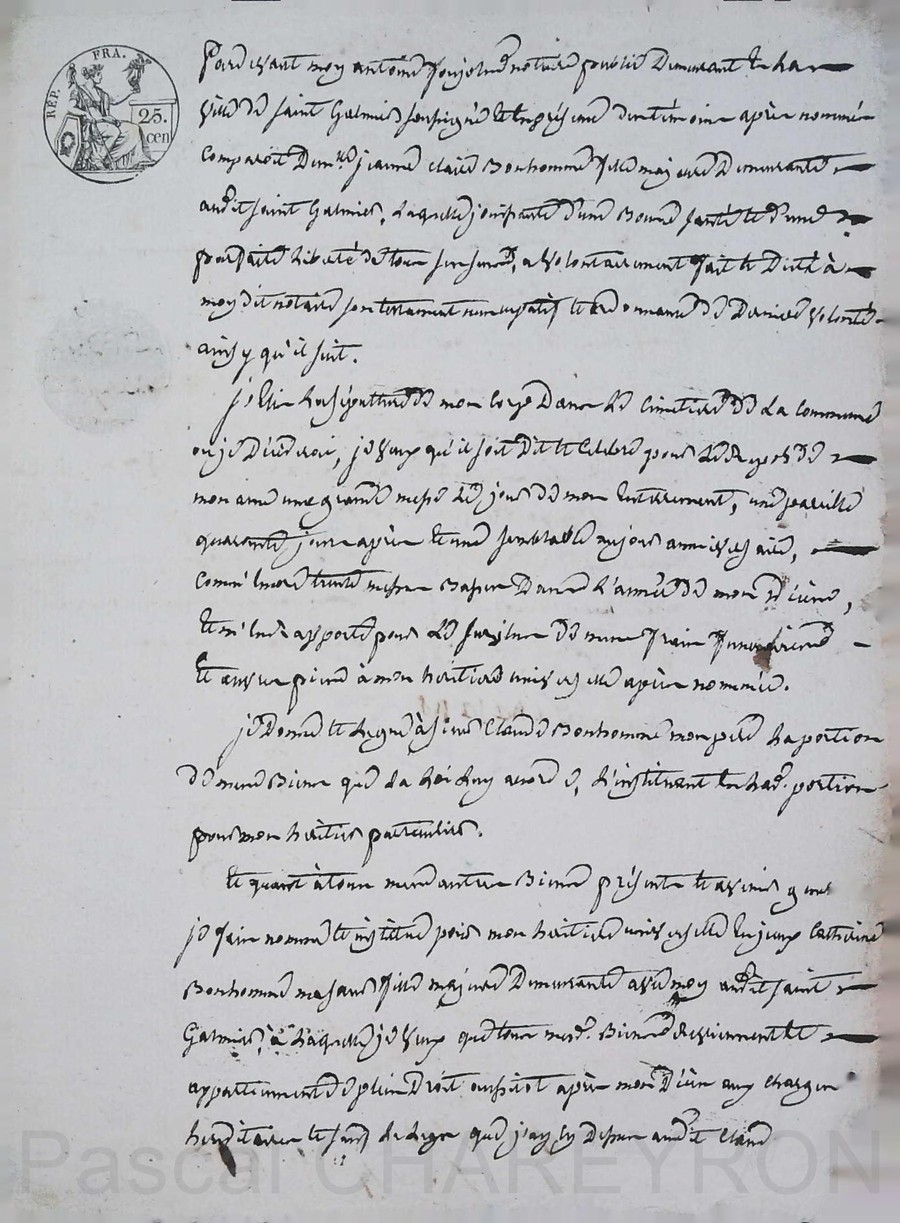 RÉP. FRA.
25. cen
Pardevant moy antoine notaire public Demeurant En La
ville de Saint Galmier soussigné et En présence des témoins après nommés
Comparoit Dem.lle jeanne claire Bonhomme fille majeure Demeurante
audit Saint Galmier, Laquelle jouissante d'une Bonne santé et d'une
parfaite Liberté de tous ses sens, a volontairement fait et Dicté à
moy dit notaire son testament nuncupatif et ordonnance de Derniere volonté
ainsy qu'il suit.
j'Elis La sépulture de mon Corps Dans Le Cimetiere de La Commune
ou je Déèderai, je veux qu'il soit Dit et Celebré pour Le Repos de
mon ame une grande messe Le jour de mon Enterrement, une pareille
quarante jours après et une semblable au jour anniversaire,
Comm' Encore trente messes Basses Dans L'année de mon déces,
Et m'En rapporte pour Le surplus de mes frais funeraires
Et œuvres pies à mon héritiere universelle après nommée.
je Donne et Legue à sieur Claude Bonhomme mon pere La portion
de mes Biens que La Loi Luy accorde, L'instituant En Lad. portion
pour mon héritier particulier.
Et quant à tous mes autres Biens présents et avenir
je fais nomme et institue pour mon héritiere universelle Catherine
Bonhomme ma sœur fille majeure Demeurante avec moy audit saint
Galmier, à Laquelle je veux que tous mesd. Biens Reviennent et
appartiennent de plein Droit aussitot après mon Décès aux charges
héréditaires et sauf Le Legs que j'ay Cy Dessus audit Claude
Pascal CHAREYRON